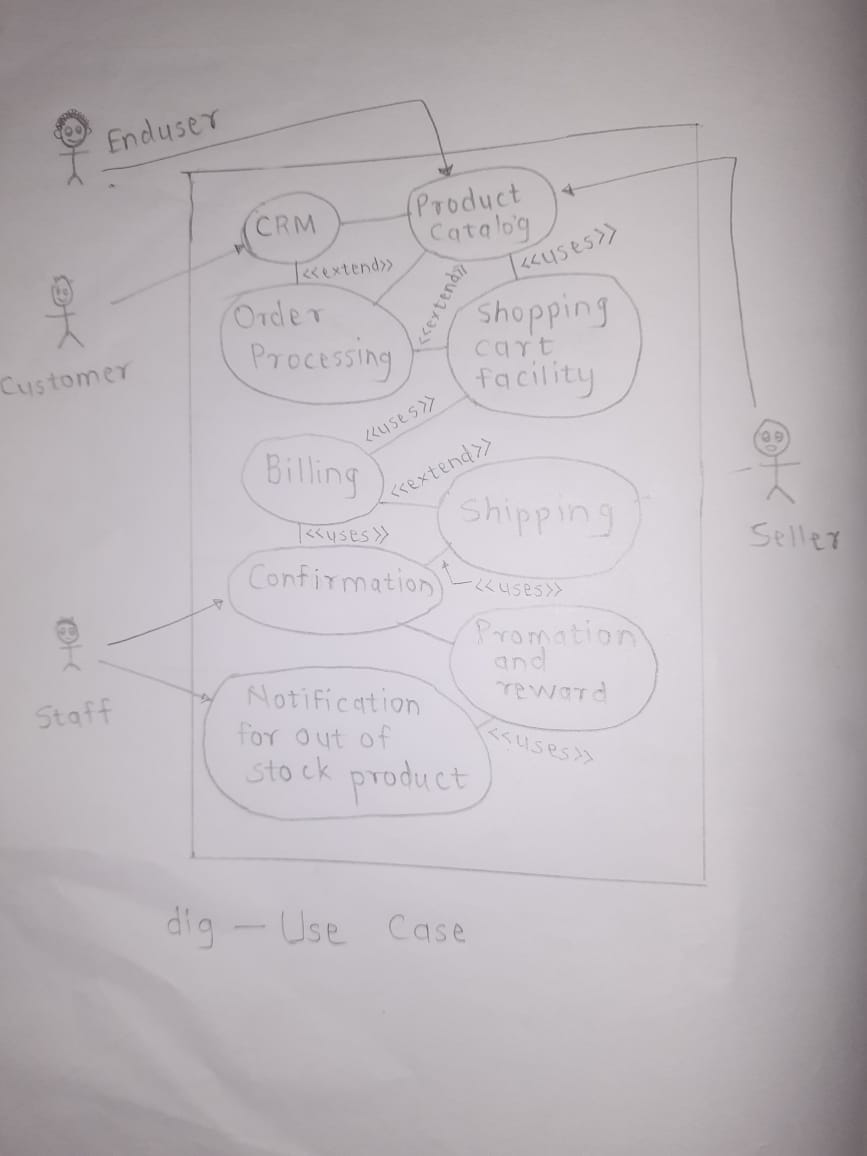 Enduser
CRM
Product
Catalog
<<uses>>
<<extend>>
<<extend>>
Order
Processing
Shopping
cart
facility
Customer
<<uses>>
Billing
<<extend>>
Shipping
<<uses>>
Seller
Confirmation
<<uses>>
Promation
and
reward
Staff
Notification
for out of
stock product
<<uses>>
dig - Use Case